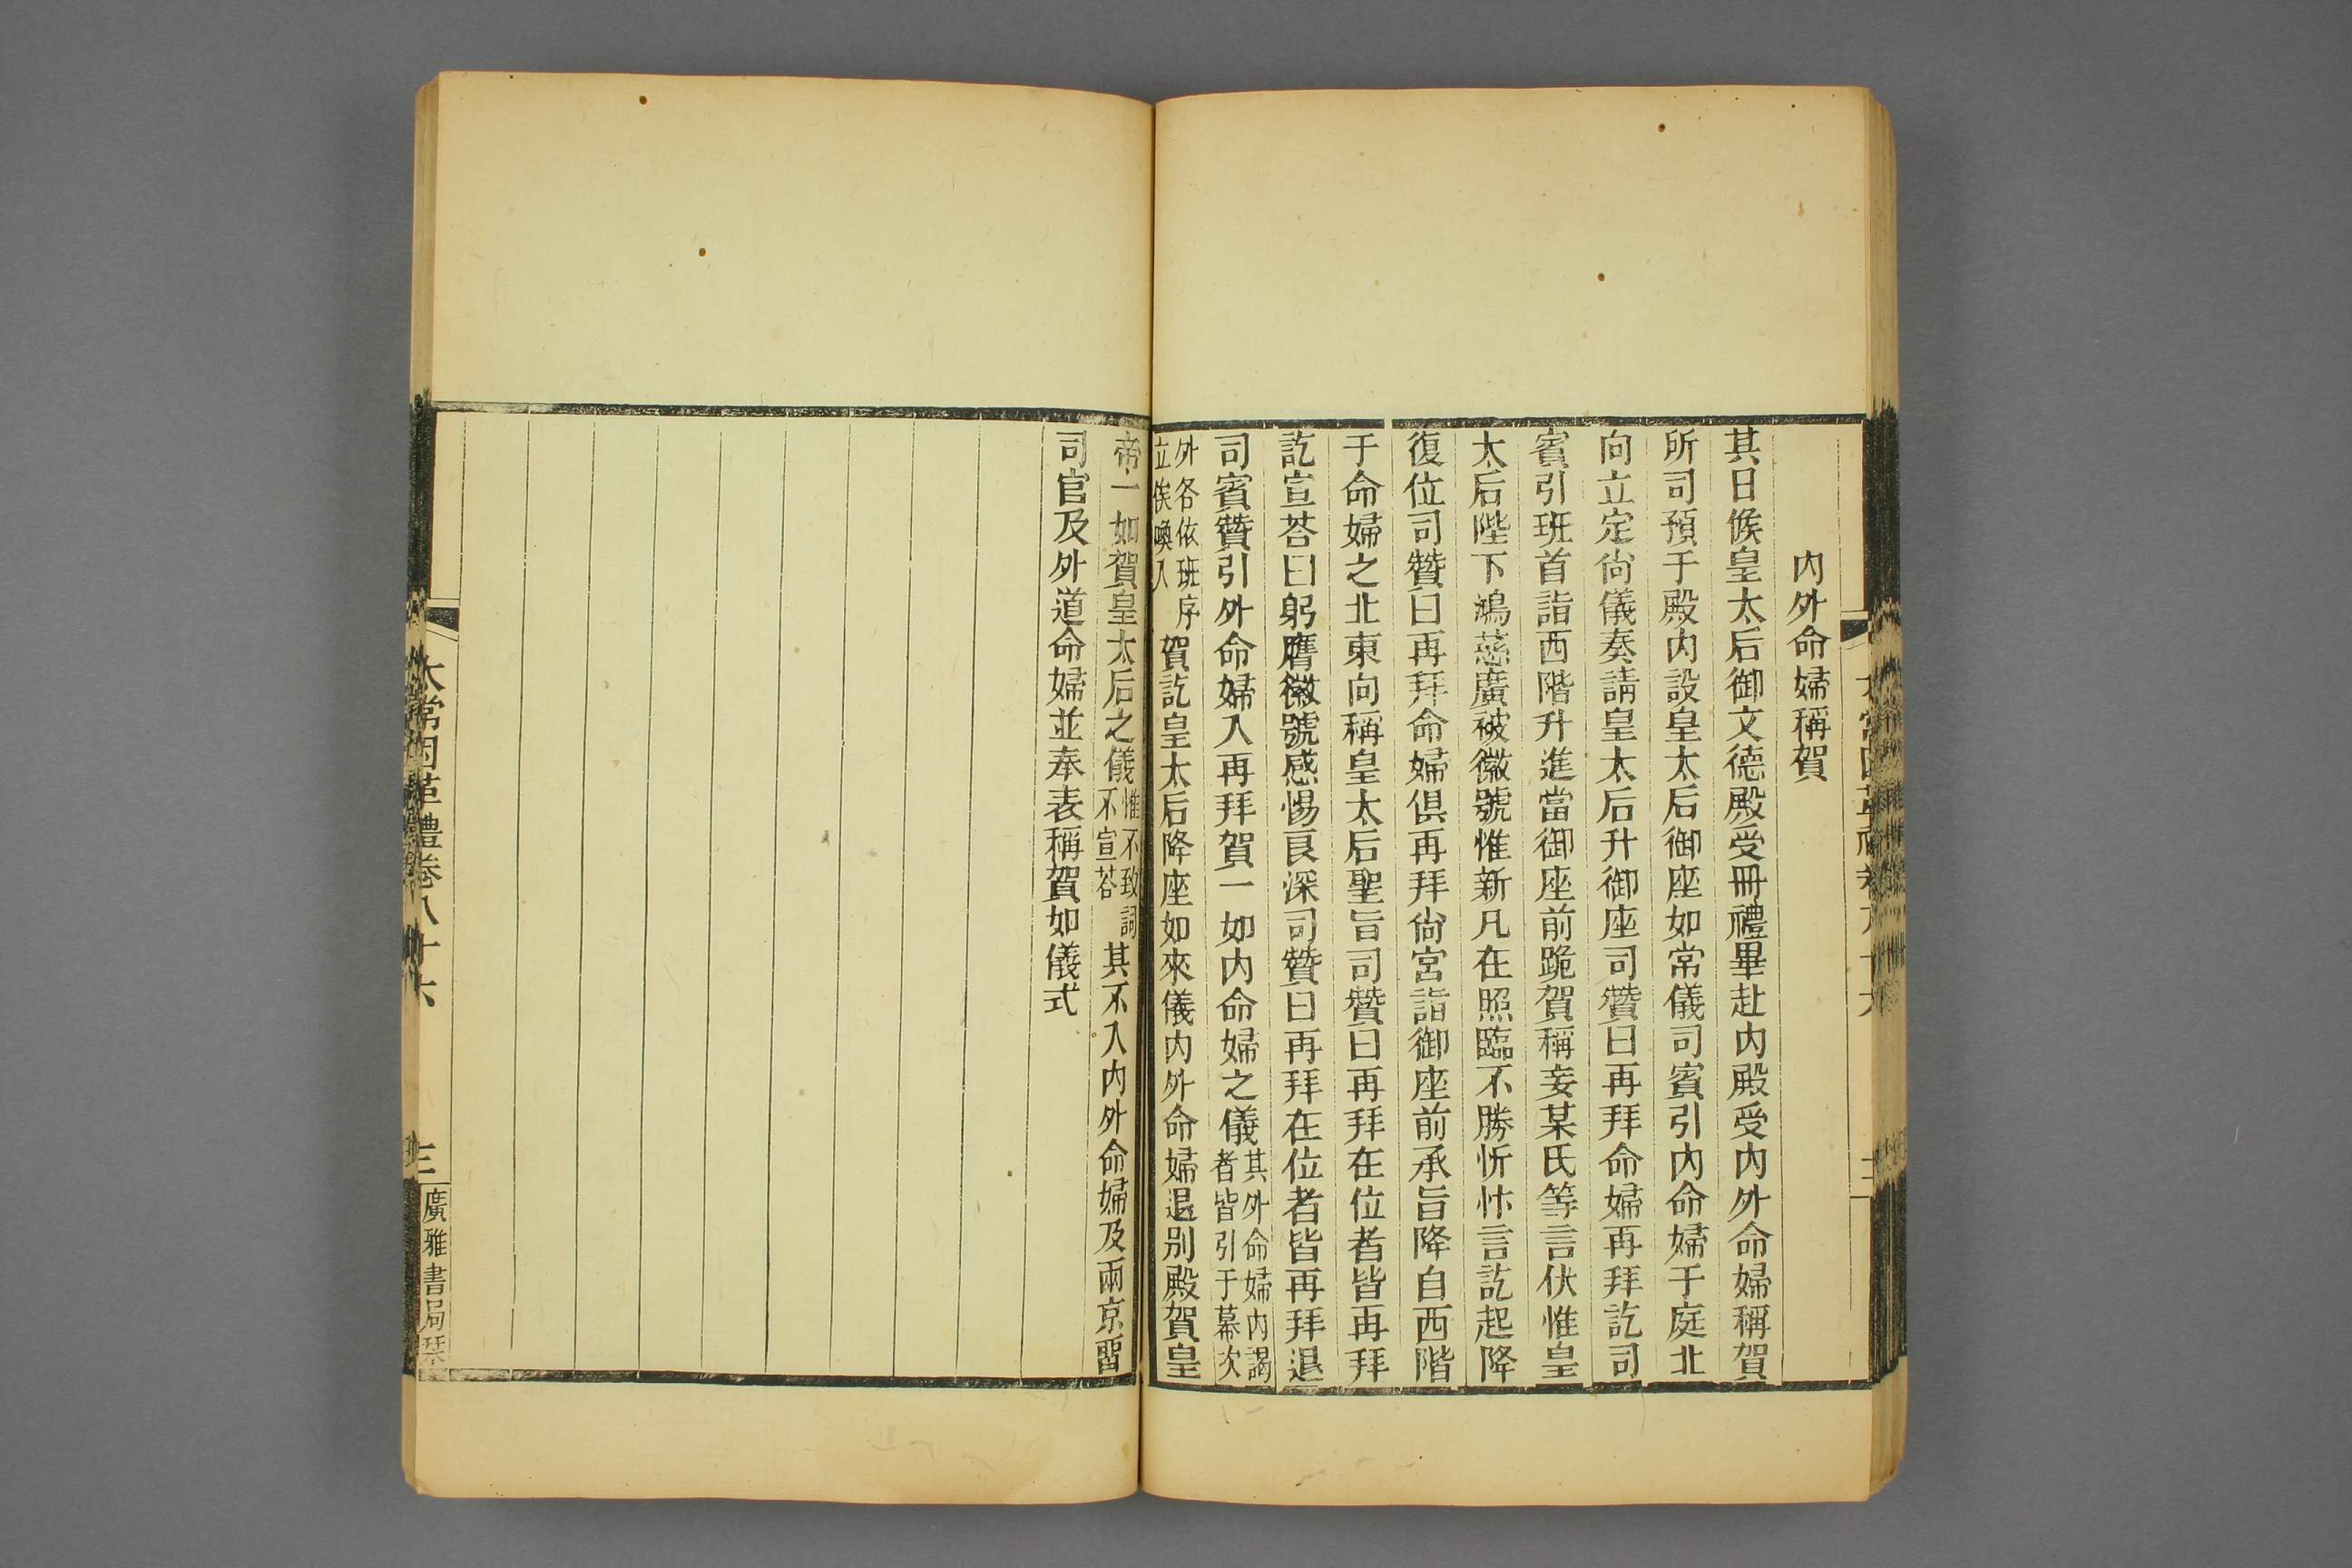 內外命婦稱賀
其日候皇太后御文德殿受冊禮畢赴內殿受內外命婦稱賀
所司預于殿內設皇太后御座如常儀司賓引內命婦于庭北
向立定尙儀奏請皇太后升御座司贊曰再拜命婦再拜訖司
賓引班首詣西階升進當御座前跪賀稱妾某氏等言伏惟皇
太后陛下鴻慈廣被徽號惟新凡在照臨不勝忻忭言訖起降
復位司贊曰再拜命婦俱再拜尙宮詣御座前承旨降自西階
于命婦之北東向稱皇太后聖旨司贊曰再拜在位者皆再拜
訖宣荅曰躬膺徽號感惕良深司贊曰再拜在位者皆再拜退
司賓贊引外命婦入再拜賀一如內命婦之儀其外命婦內謁者皆引于幕次
外各依班序立俟喚入賀訖皇太后降座如來儀內外命婦退別殿賀皇
帝一如賀皇太后之儀惟不致詞不宣荅其不入內外命婦及兩京留
司官及外道命婦並奉表稱賀如儀式
太常因革禮卷八十六
三
廣雅書局栞